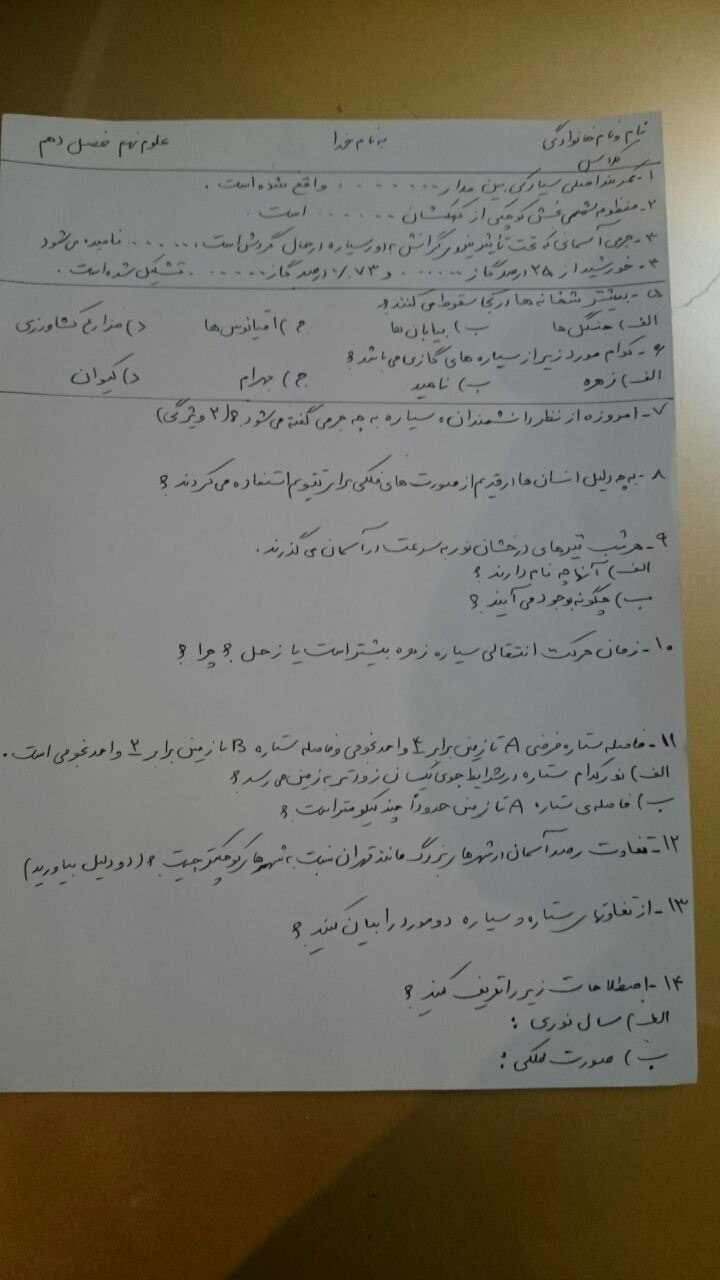 نام و نام خانوادگی به نام خدا علوم نهم فصل دهم
کلاس
۱- کمربند اصلی سیارکی بین مدار ....... واقع شده است.
۲- منظومه شمسی بخش کوچکی از کهکشان ....... است.
۳- جرمی آسمانی که تحت تأثیر نیروی گرانش، به دور سیاره در حال گردش است، ....... نامیده می‌شود
۴- خورشید از ۲۵ درصد گاز ...... و ۷۳٪ درصد گاز ...... تشکیل شده است.
۵- بیشتر شخانه‌ها در کجا سقوط می‌کنند؟
الف) جنگل‌ها ب) بیابان‌ها ج) اقیانوس‌ها د) مزارع کشاورزی
۶- کدام مورد زیر از سیاره‌های گازی می‌باشد؟
الف) زهره ب) ناهید ج) بهرام د) کیوان
۷- امروزه از نظر دانشمندان، سیاره به چه جرمی گفته می‌شود؟ (۳ ویژگی)
۸- به چه دلیل انسان‌ها در قدیم از صورت‌های فلکی برای تقویم استفاده می‌کردند؟
۹- هر شب تیرهای درخشان نور به سرعت در آسمان می‌گذرند.
الف) آنها چه نام دارند؟
ب) چگونه بوجود می‌آیند؟
۱۰- زمان حرکت انتقالی سیاره زهره بیشتر است یا زحل؟ چرا؟
۱۱- فاصله ستاره فرضی A تا زمین برابر ۴ واحد نجومی و فاصله ستاره B تا زمین برابر ۲ واحد نجومی است.
الف) نور کدام ستاره در شرایط جوی یکسان زودتر به زمین می‌رسد؟
ب) فاصله‌ی ستاره A تا زمین حدوداً چند کیلومتر است؟
۱۲- تفاوت رصد آسمان در شهرهای بزرگ مانند تهران نسبت به شهرهای کوچکتر چیست؟ (دو دلیل بیاورید)
۱۳- از تفاوتهای ستاره و سیاره دو مورد را بیان کنید؟
۱۴- اصطلاحات زیر را تعریف کنید؟
الف) سال نوری:
ب) صورت فلکی: